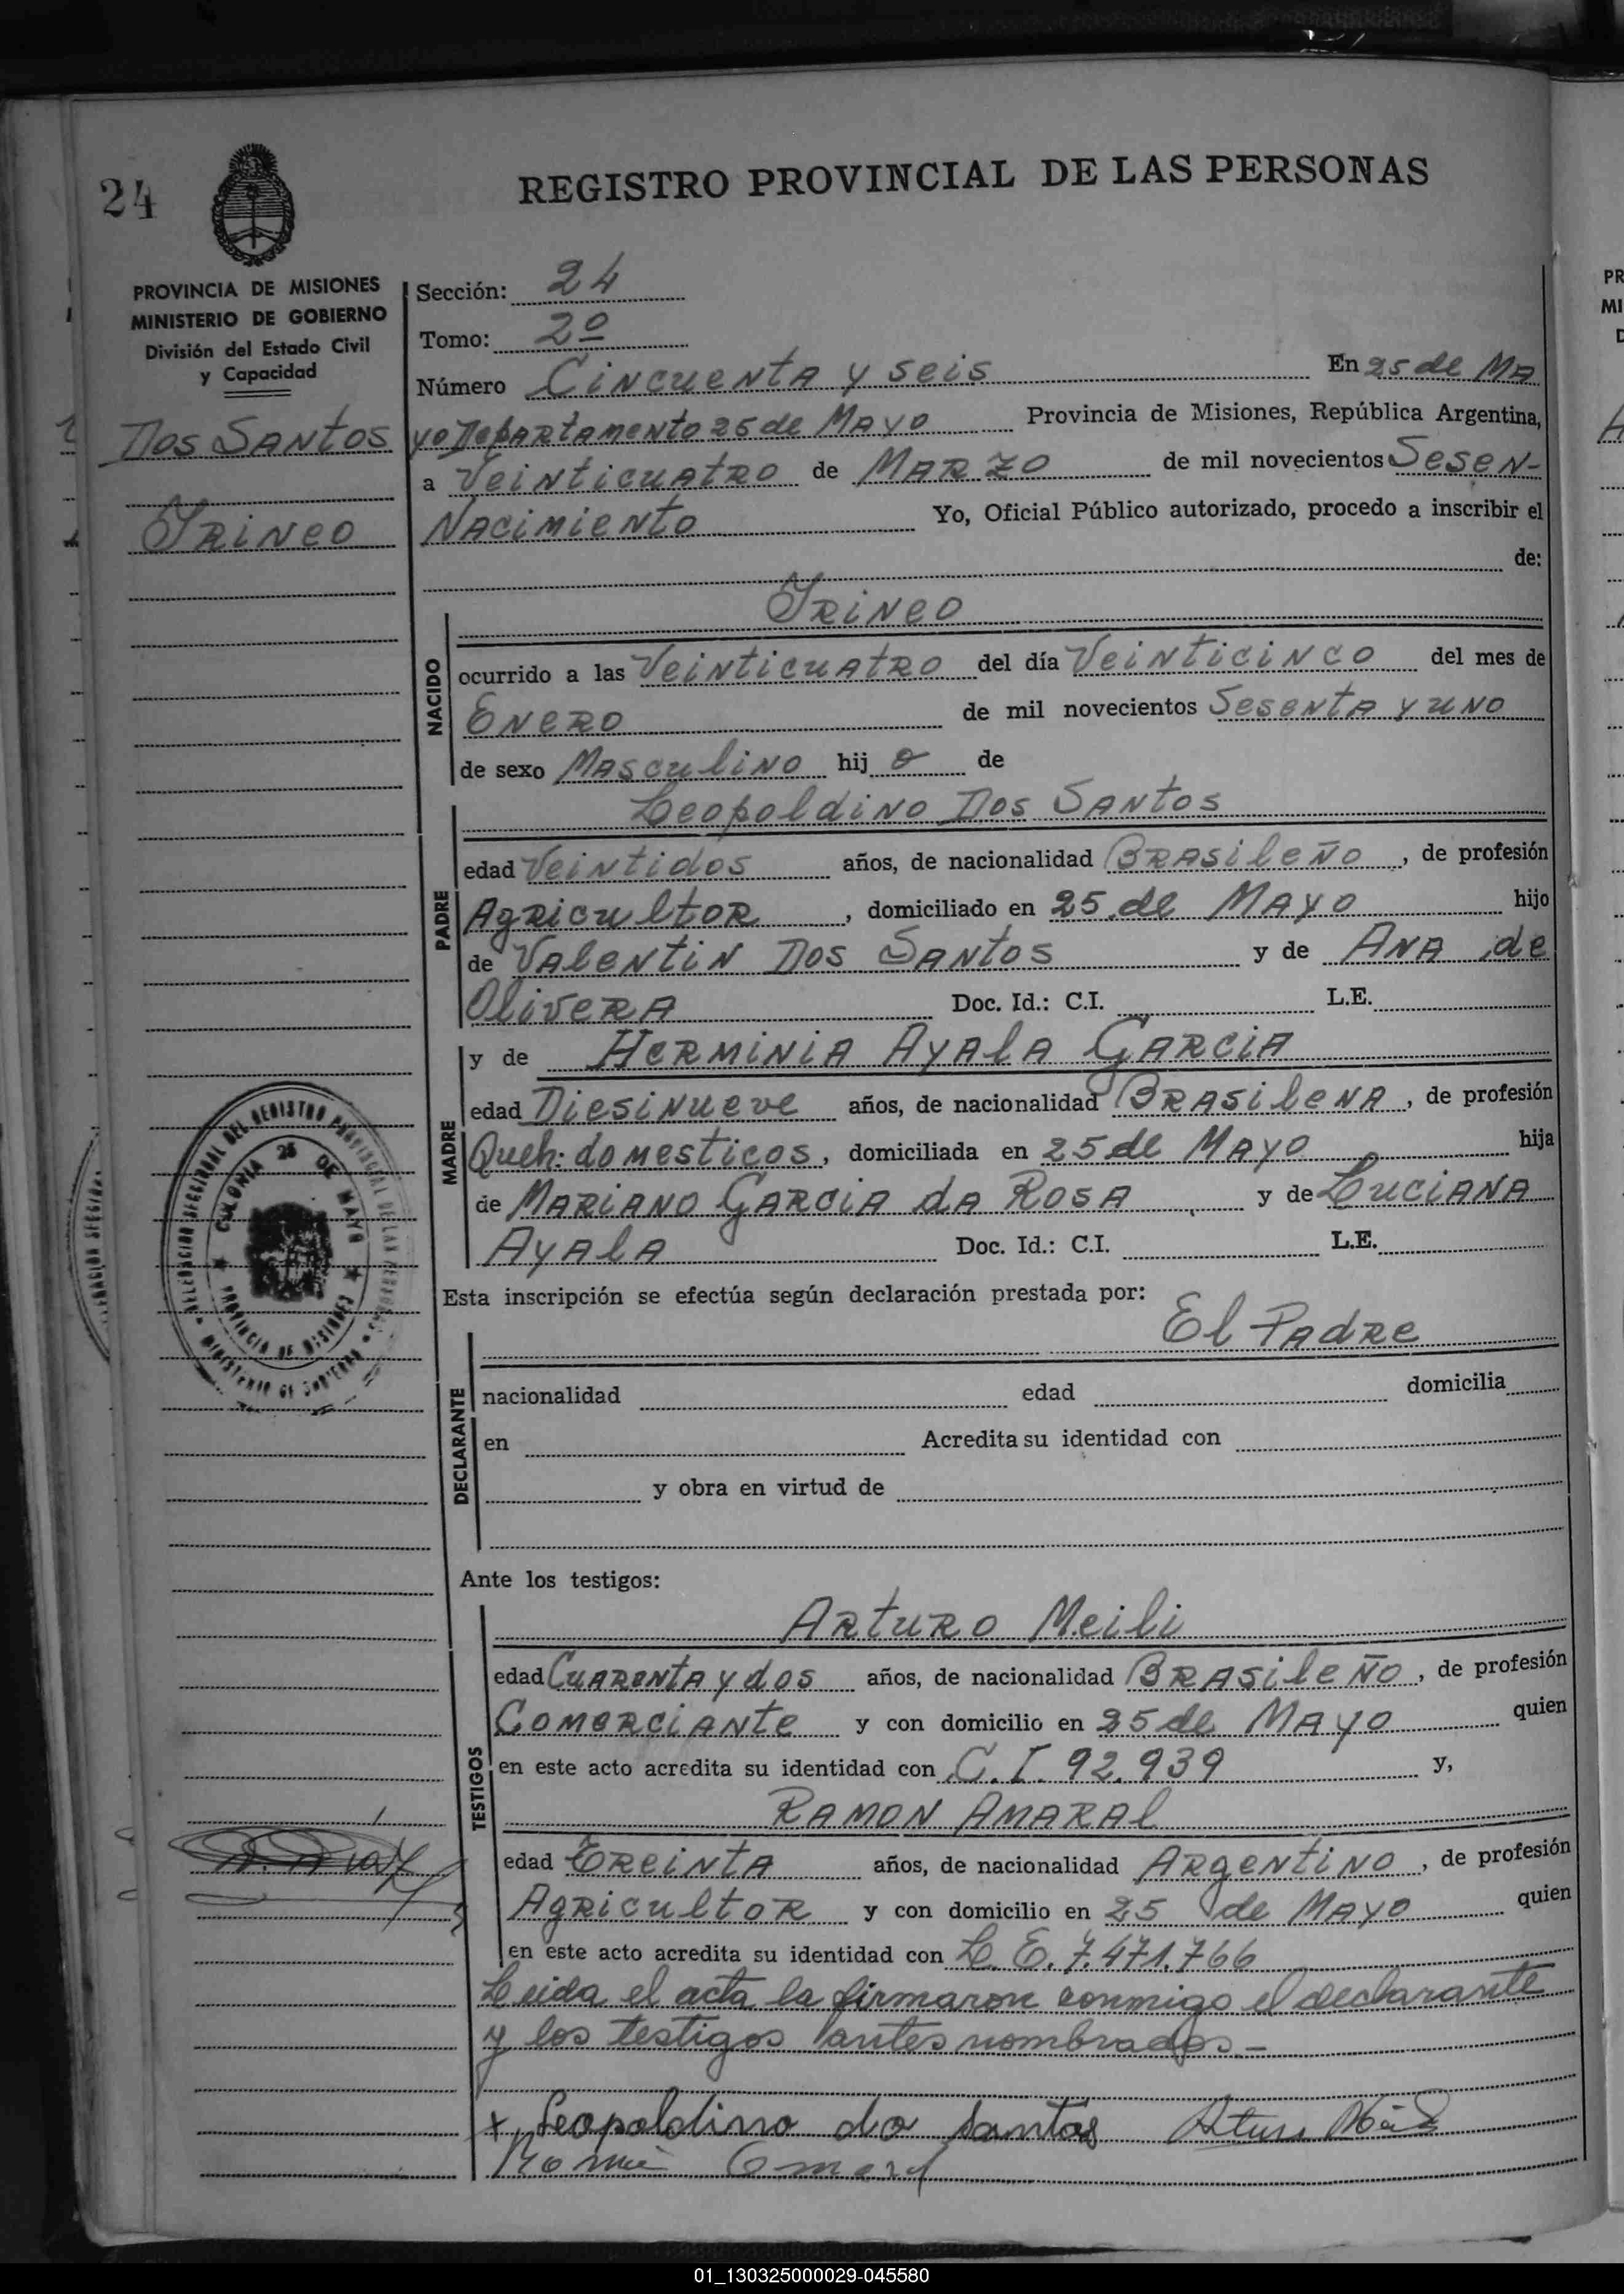 24
REGISTRO PROVINCIAL DE LAS PERSONAS
PROVINCIA DE MISIONES
MINISTERIO DE GOBIERNO
División del Estado Civil
y Capacidad
Dos Santos
Irineo
Sección: 24
Tomo: 2º
Número Cincuenta y seis En 25 de Ma
yo Departamento 25 de Mayo Provincia de Misiones, República Argentina,
a Veinticuatro de Marzo de mil novecientos Sesen-
Nacimiento Yo, Oficial Público autorizado, procedo a inscribir el
de:
Irineo
NACIDO
ocurrido a las Veinticuatro del día Veinticinco del mes de
Enero de mil novecientos Sesenta y uno
de sexo Masculino hij o de
Leopoldino Dos Santos
PADRE
edad Veintidos años, de nacionalidad Brasileño, de profesión
Agricultor, domiciliado en 25 de Mayo hijo
de Valentin Dos Santos y de Ana de
Olivera Doc. Id.: C.I. L.E.
y de Herminia Ayala Garcia
MADRE
edad Diesinueve años, de nacionalidad Brasilena, de profesión
Queh: domesticos, domiciliada en 25 de Mayo hija
de Mariano Garcia da Rosa y de Luciana
Ayala Doc. Id.: C.I. L.E.
DELEGACION SECCIONAL DEL REGISTRO PROVINCIAL DE LAS PERSONAS
COLONIA 25 DE MAYO
PROVINCIA DE MISIONES
MINISTERIO DE GOBIERNO
Esta inscripción se efectúa según declaración prestada por:
El Padre
DECLARANTE
nacionalidad edad domicilia
en Acredita su identidad con
y obra en virtud de
Ante los testigos:
Arturo Meili
TESTIGOS
edad Cuarenta y dos años, de nacionalidad Brasileño, de profesión
Comerciante y con domicilio en 25 de Mayo quien
en este acto acredita su identidad con C.I. 92.939 y,
Ramon Amaral
edad Treinta años, de nacionalidad Argentino, de profesión
Agricultor y con domicilio en 25 de Mayo quien
en este acto acredita su identidad con L.E. 7.471.766
Leida el acta la firmaron conmigo el declarante
y los testigos antes nombrados.-
x Leopoldino do Santos
01_130325000029-045580